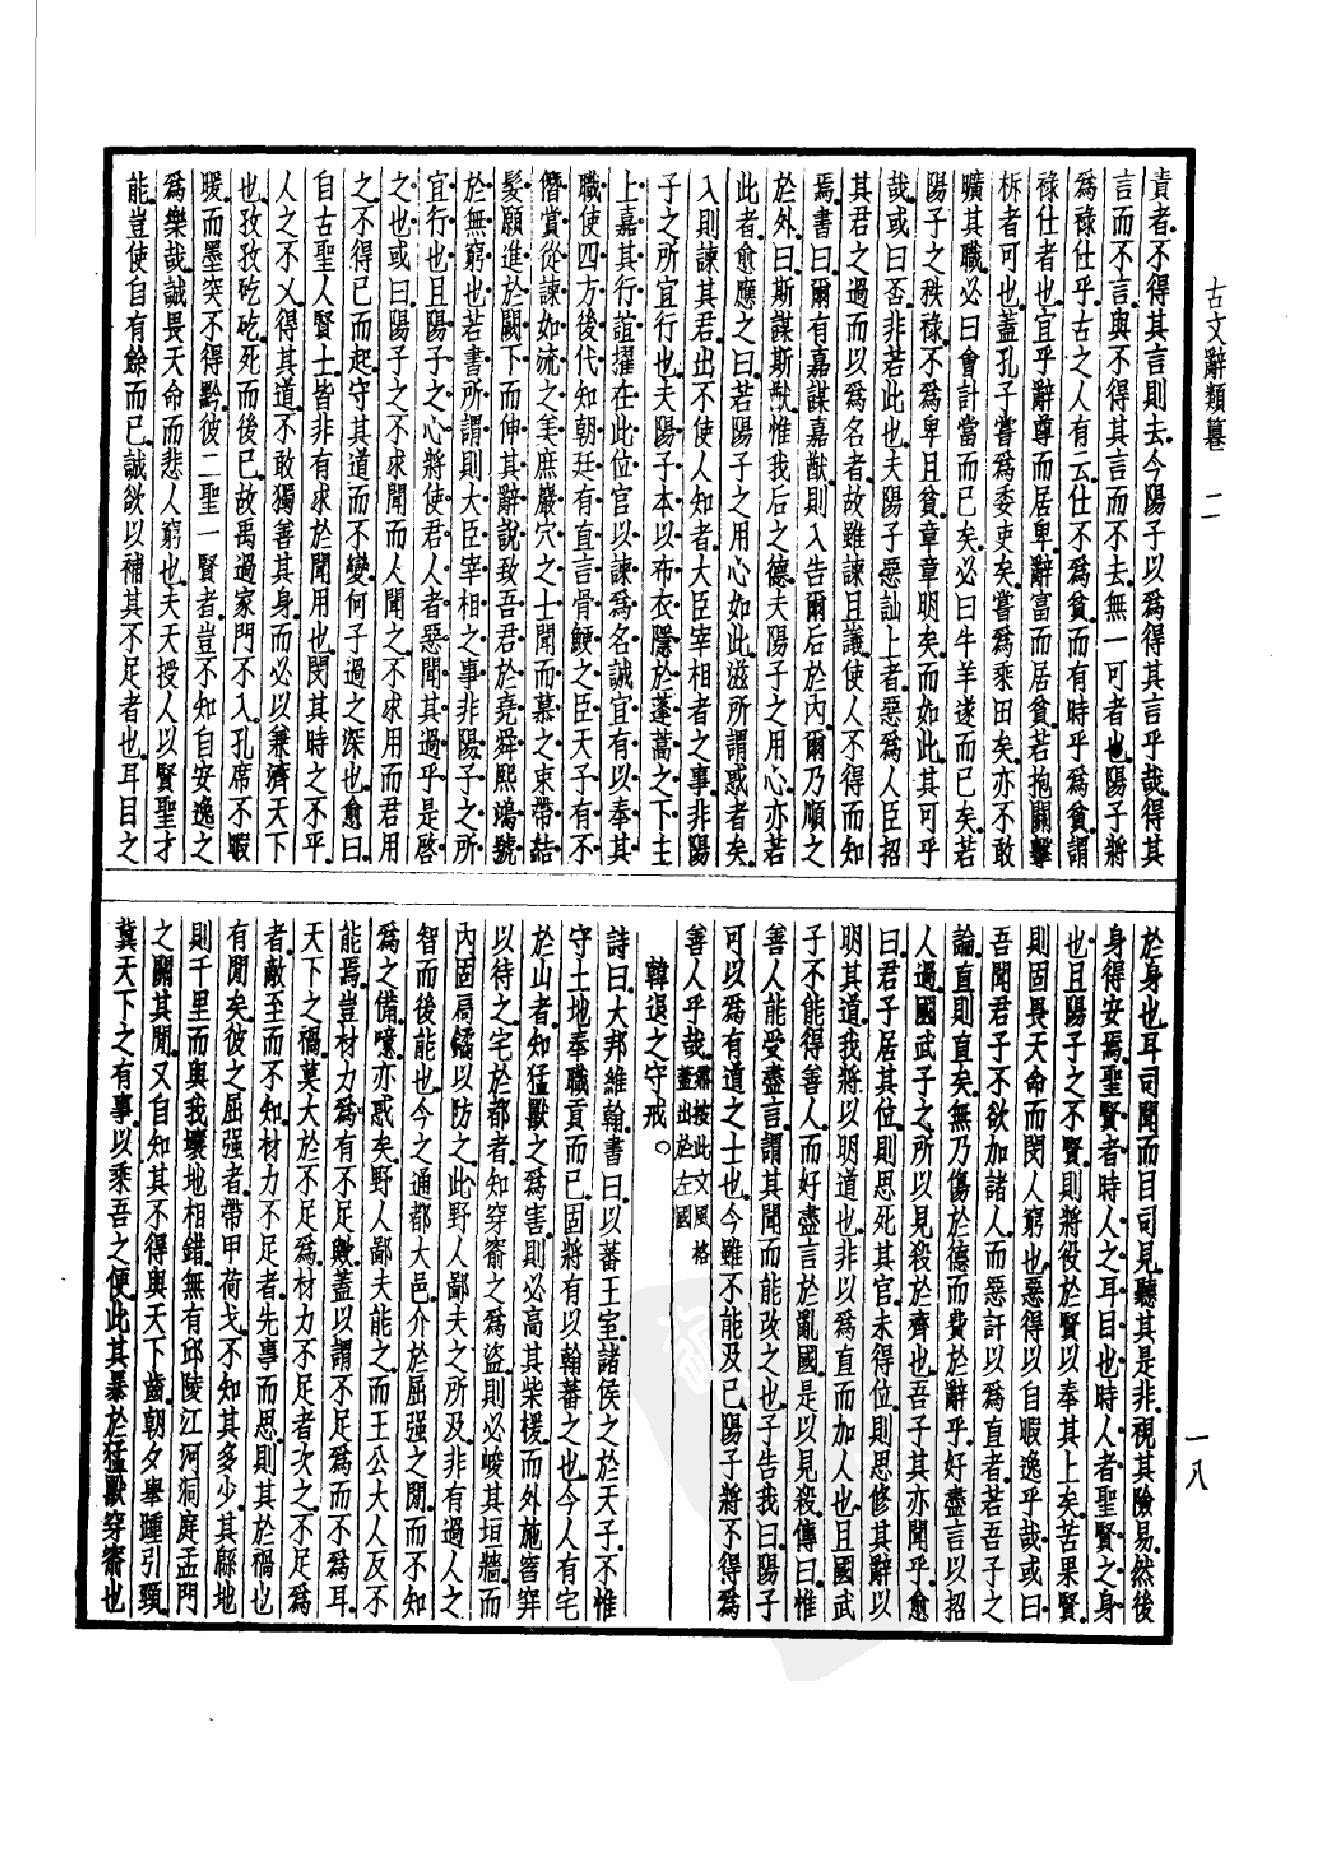 古文辭類纂　二
一八
責者不得其言則去今陽子以爲得其言乎哉得其
言而不言與不得其言而不去無一可者也陽子將
爲祿仕乎古之人有云仕不爲貧而有時乎爲貧謂
祿仕者也宜乎辭尊而居卑辭富而居貧若抱關擊
柝者可也蓋孔子嘗爲委吏矣嘗爲乘田矣亦不敢
曠其職必曰會計當而已矣必曰牛羊遂而已矣若
陽子之秩祿不爲卑且貧章章明矣而如此其可乎
哉或曰否非若此也夫陽子惡訕上者惡爲人臣招
其君之過而以爲名者故雖諫且議使人不得而知
焉書曰爾有嘉謀嘉猷則入告爾后於內爾乃順之
於外曰斯謀斯猷惟我后之德夫陽子之用心亦若
此者愈應之曰若陽子之用心如此滋所謂惑者矣
入則諫其君出不使人知者大臣宰相者之事非陽
子之所宜行也夫陽子本以布衣隱於蓬蒿之下主
上嘉其行誼擢在此位官以諫爲名誠宜有以奉其
職使四方後代知朝廷有直言骨鯁之臣天子有不
僭賞從諫如流之美庶巖穴之士聞而慕之束帶結
髮願進於闕下而伸其辭說致吾君於堯舜熙鴻號
於無窮也若書所謂則大臣宰相之事非陽子之所
宜行也且陽子之心將使君人者惡聞其過乎是啓
之也或曰陽子之不求聞而人聞之不求用而君用
之不得已而起守其道而不變何子過之深也愈曰
自古聖人賢士皆非有求於聞用也閔其時之不平
人之不乂得其道不敢獨善其身而必以兼濟天下
也孜孜矻矻死而後已故禹過家門不入孔席不暇
暖而墨突不得黔彼二聖一賢者豈不知自安逸之
爲樂哉誠畏天命而悲人窮也夫天授人以賢聖才
能豈使自有餘而已誠欲以補其不足者也耳目之
於身也耳司聞而目司見聽其是非視其險易然後
身得安焉聖賢者時人之耳目也時人者聖賢之身
也且陽子之不賢則將役於賢以奉其上矣苦果賢
則固畏天命而閔人窮也惡得以自暇逸乎哉或曰
吾聞君子不欲加諸人而惡訐以爲直者若吾子之
論直則直矣無乃傷於德而費於辭乎好盡言以招
人過國武子之所以見殺於齊也吾子其亦聞乎愈
曰君子居其位則思死其官未得位則思修其辭以
明其道我將以明道也非以爲直而加人也且國武
子不能得善人而好盡言於亂國是以見殺傳曰惟
善人能受盡言謂其聞而能改之也子告我曰陽子
可以爲有道之士也今雖不能及已陽子將不得爲
善人乎哉鼐按此文風格蓋出於左國
韓退之守戒○
詩曰大邦維翰書曰以蕃王室諸侯之於天子不惟
守土地奉職貢而已固將有以翰蕃之也今人有宅
於山者知猛獸之爲害則必高其柴楥而外施窖穽
以待之宅於都者知穿窬之爲盜則必峻其垣牆而
內固扃鐍以防之此野人鄙夫之所及非有過人之
智而後能也今之通都大邑介於屈强之閒而不知
爲之備噫亦惑矣野人鄙夫能之而王公大人反不
能焉豈材力爲有不足歟蓋以謂不足爲而不爲耳
天下之禍莫大於不足爲材力不足者次之不足爲
者敵至而不知材力不足者先事而思則其於禍也
有閒矣彼之屈强者帶甲荷戈不知其多少其緜地
則千里而與我壤地相錯無有邱陵江河洞庭孟門
之關其閒又自知其不得與天下齒朝夕舉踵引頸
冀天下之有事以乘吾之便此其暴於猛獸穿窬也